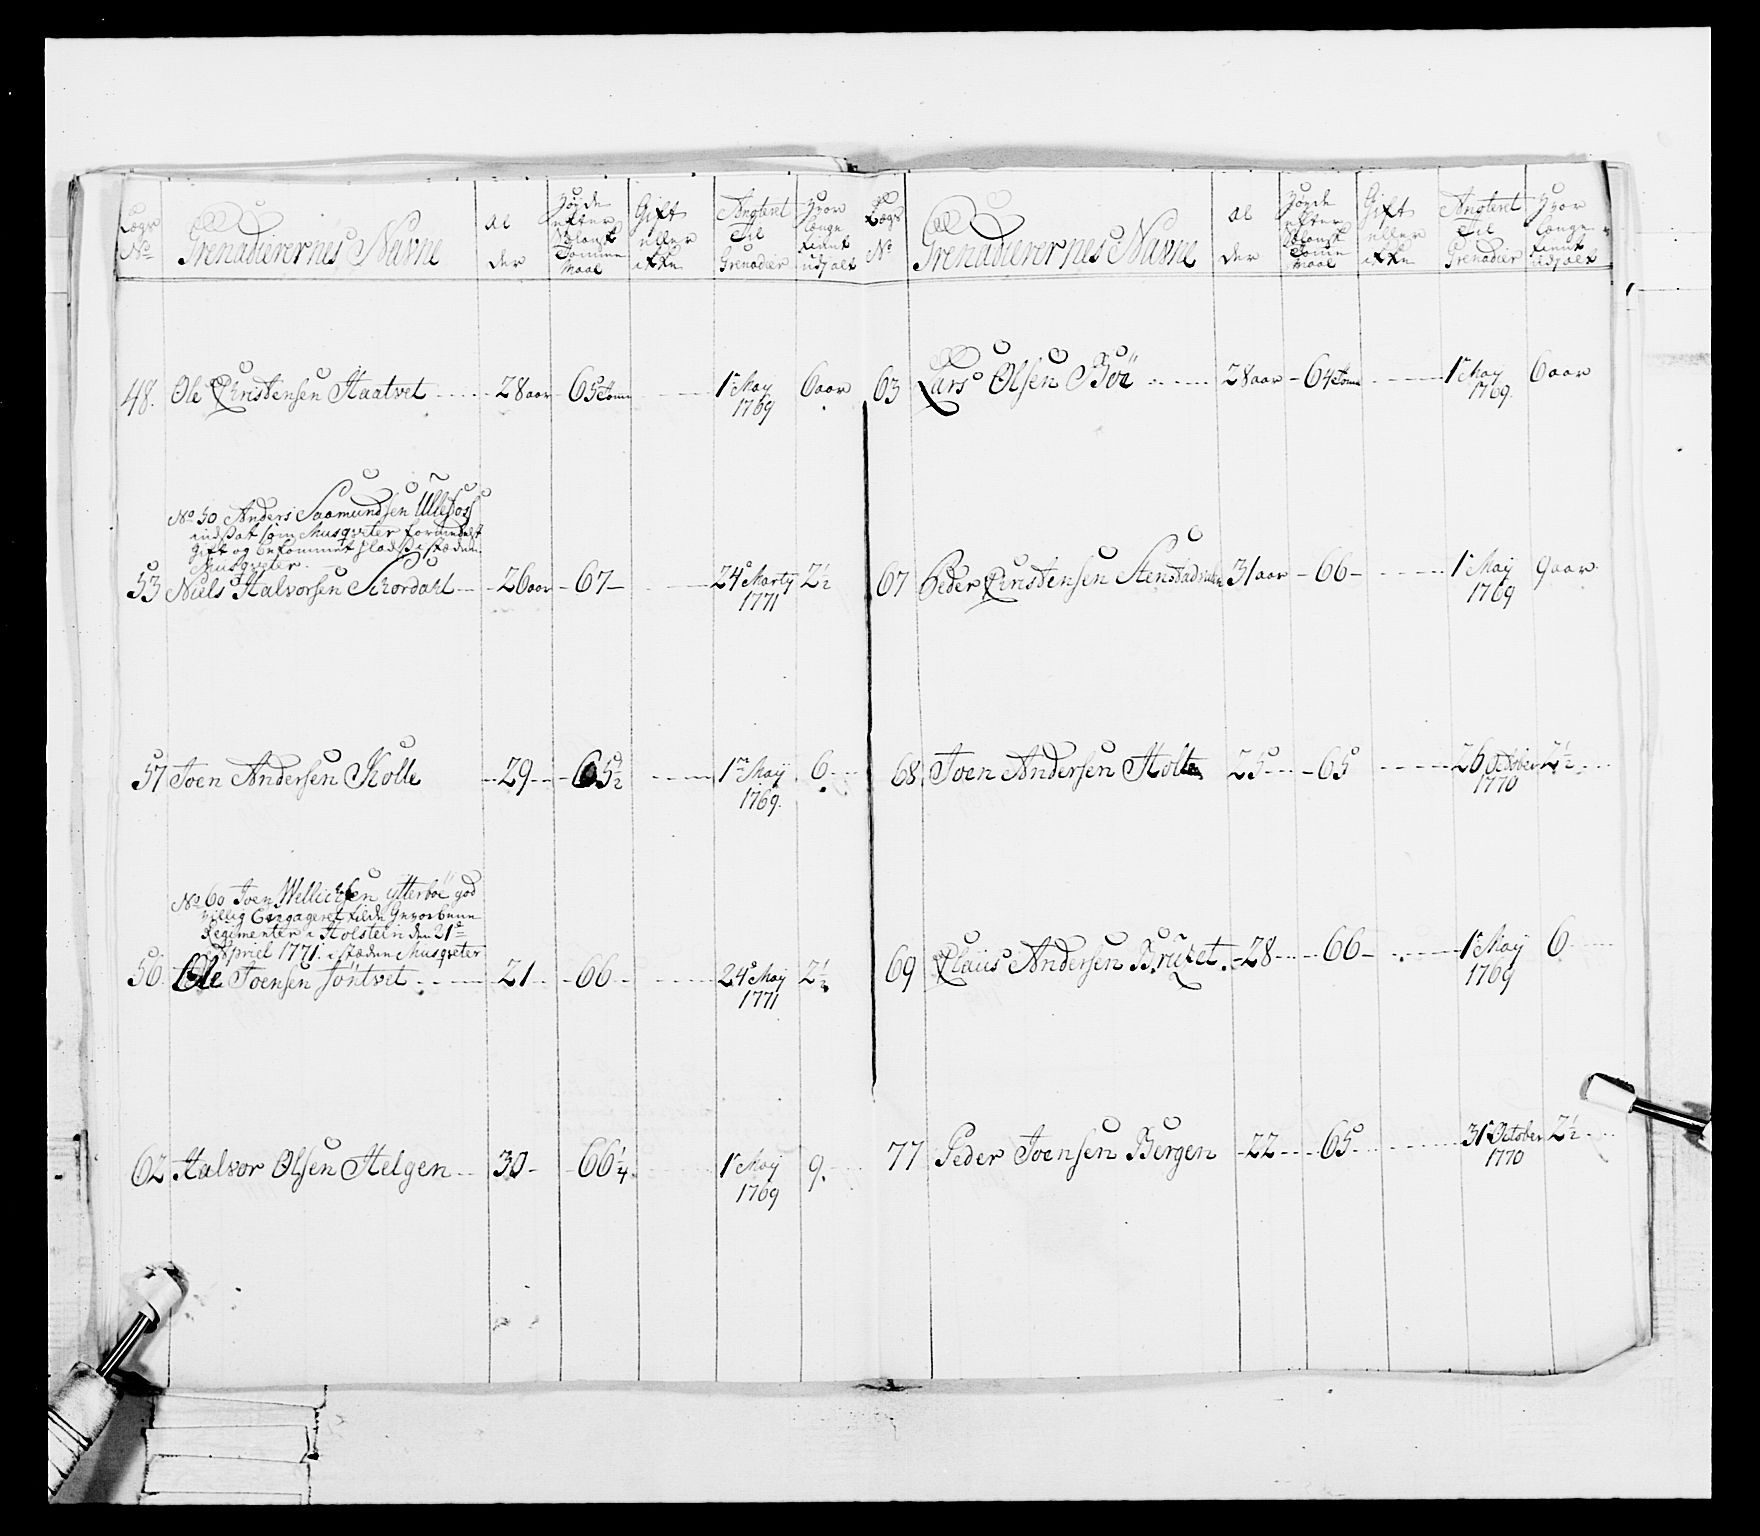 Lægs No
Grenadierernes Navne
Al der
Høyde efter Tomme Maal
Gift eller ikke
Antient Til Grenadier
Hvor længe tient udj alt
48. Ole Christensen Haatvet 28 aar 65 Tom 1 May 1769 6 aar
No 50 Anders Saamundsen Ullefos
indsat som Musqveter formedelst
Gift og bekommet Plads i stæden
Musqveter
53 Niels Halvorsen Schordahl 26 aar 67 24 Martÿ 1771 2½
57 Joen Andersen Holte 29 65½ 1 Maÿ 1769. 6
No 60 Joen Ytterböe god
villig Engageret til de Gevorbene
Regimenter i Holstein den 21
Apriel 1771. i stæden Musqveter
56 Ole Joensen Jöntvet 21 66 24 Maÿ 1771 2½
62 Halvor Olsen Helgen 30 66¼ 1 Maÿ 1769 9.
Lægs No
Grenadierernes Navne
Al der
Høyde efter Tomme Maal
Gift eller ikke
Antient Til Grenadier
Hvor længe tient udj alt
63 Lars Olsen Böe 28 aar 64 Tom 1 May 1769. 6 aar
67 Peder Christensen 31 aar 66 1 Maÿ 1769 9 aar
68. Joen Andersen Holte 25 65 26 October 1770 2½
69 Claus Andersen 28 66 1 Maÿ 1769 6
77 Peder Joensen Bergen 22 65 31 October 1770 2½